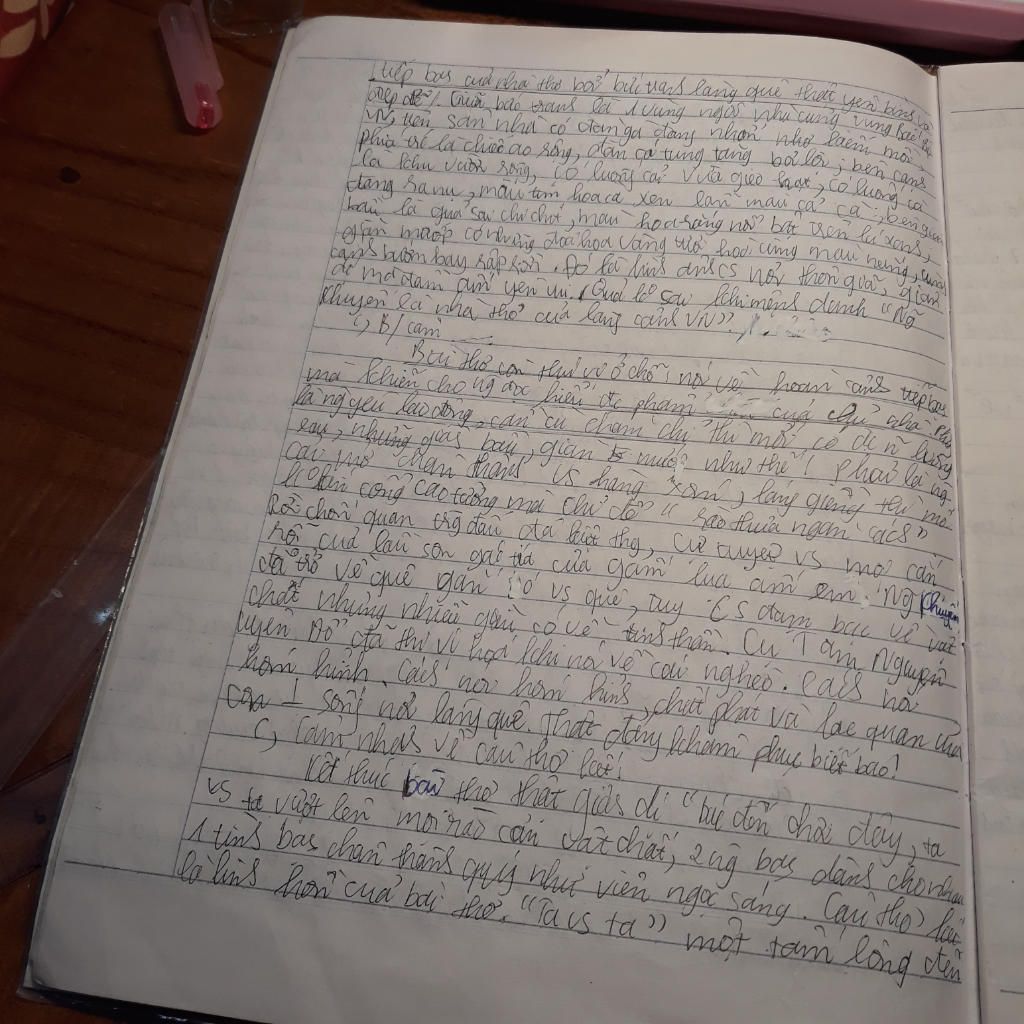 tiếp bạn của nhà thơ bởi bức tranh làng quê thật yên bình và
đẹp đẽ! Giữa bao tranh là 1 vùng ngôi nhà cùng vùng
VN, trên sân nhà có đàn gà đang nhởn nhơ kiếm mồi,
phía # là chiếc ao rộng, đàn cá tung tăng bơi lội; bên cạnh
là khu vườn rộng, có luống cải vừa gieo hạt, có luống cà
đang ra nụ, màu tím hoa cà xen lẫn màu cà; bên giàn
bầu là quả sai chi chít, màu hoa trắng nổi bật trên lá xanh,
giàn mướp có những đoá hoa vàng tươi hoà cùng màu nắng, cùng
cánh bướm bay rập rờn. Đó là hình ảnh cs nơi thôn giã, giản
dị mà đầm ấm yên vui. Quả k sai khi mệnh danh "Ng
Khuyến là nhà thơ của làng cảnh VN".
B/ cảm
Bài thơ còn thú vị ở chỗ nói về hoàn cảnh tiếp bạn
mà khiến cho ng đọc hiểu đc phẩm của cụ
là ng yêu lao động, cần cù chăm chỉ thì mới có đc n luống
rau, những giàn bầu, giàn mướp như thế! Phải là ng
cởi mở chân thành vs hàng xóm, láng giềng thì mới
k dân cổng cao tường mà chỉ để "rào thưa ngăn cách"
Rời chốn quan trg đầu đã biết thg, cự tuyệt vs mọi cám
rỗi của lầu son gác tía của gấm lụa ấm êm. Ng Khuyến
đã trở về quê gắn bó vs quê, tuy cs đạm bạc về vật
chất nhưng nhiều giàu có về tinh thần. Cụ Tam Nguyên
Yên Đổ đã thi vị hoá khi nói về cái nghèo. Cách nói
hóm hỉnh. Cách nói hóm hỉnh, chất phát và lạc quan của
con 1 sống nơi làng quê. Thật đáng khâm phục biết bao!
C, Cảm nhận về câu thơ kết!
Kết thúc bài thơ thật giản dị "bác đến chơi đây, ta
vs ta vượt lên mọi rào cản vật chất, 2 ng bạn dành cho nhau
1 tình bạn chân thành quý như viên ngọc sáng. Câu thơ kết
là linh hồn của bài thơ. "Ta vs ta" một tấm lòng đến